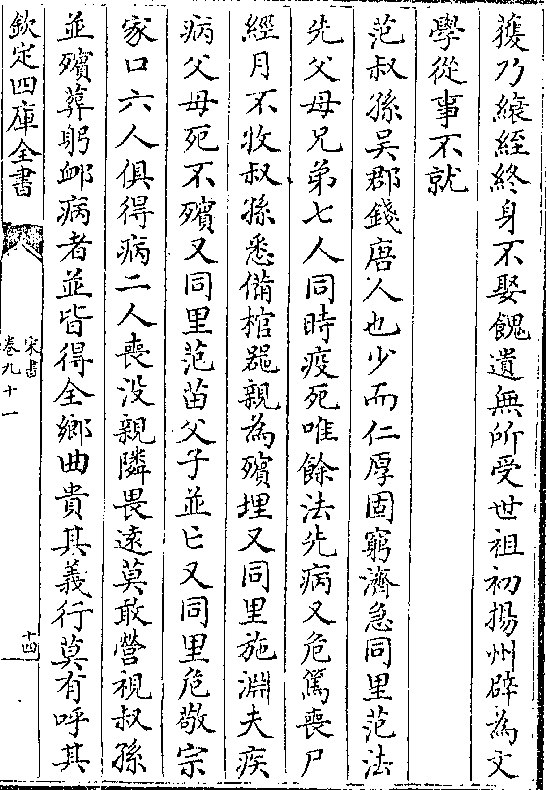 獲乃縗絰終身不娶餽遺無所受世祖初揚州辟為文
學從事不就
范叔孫吳郡錢唐人也少而仁厚固窮濟急同里范法
先父母兄弟七人同時疫死唯餘法先病又危篤喪尸
經月不收叔孫悉備棺器親為殯埋又同里施淵夫疾
病父母死不殯又同里范苗父子並亡又同里危敬宗
家口六人俱得病二人喪没親隣畏逺莫敢營視叔孫
並殯葬躬䘏病者並皆得全鄉曲貴其義行莫有呼其
欽定四庫全書
宋書
卷九十一
十四